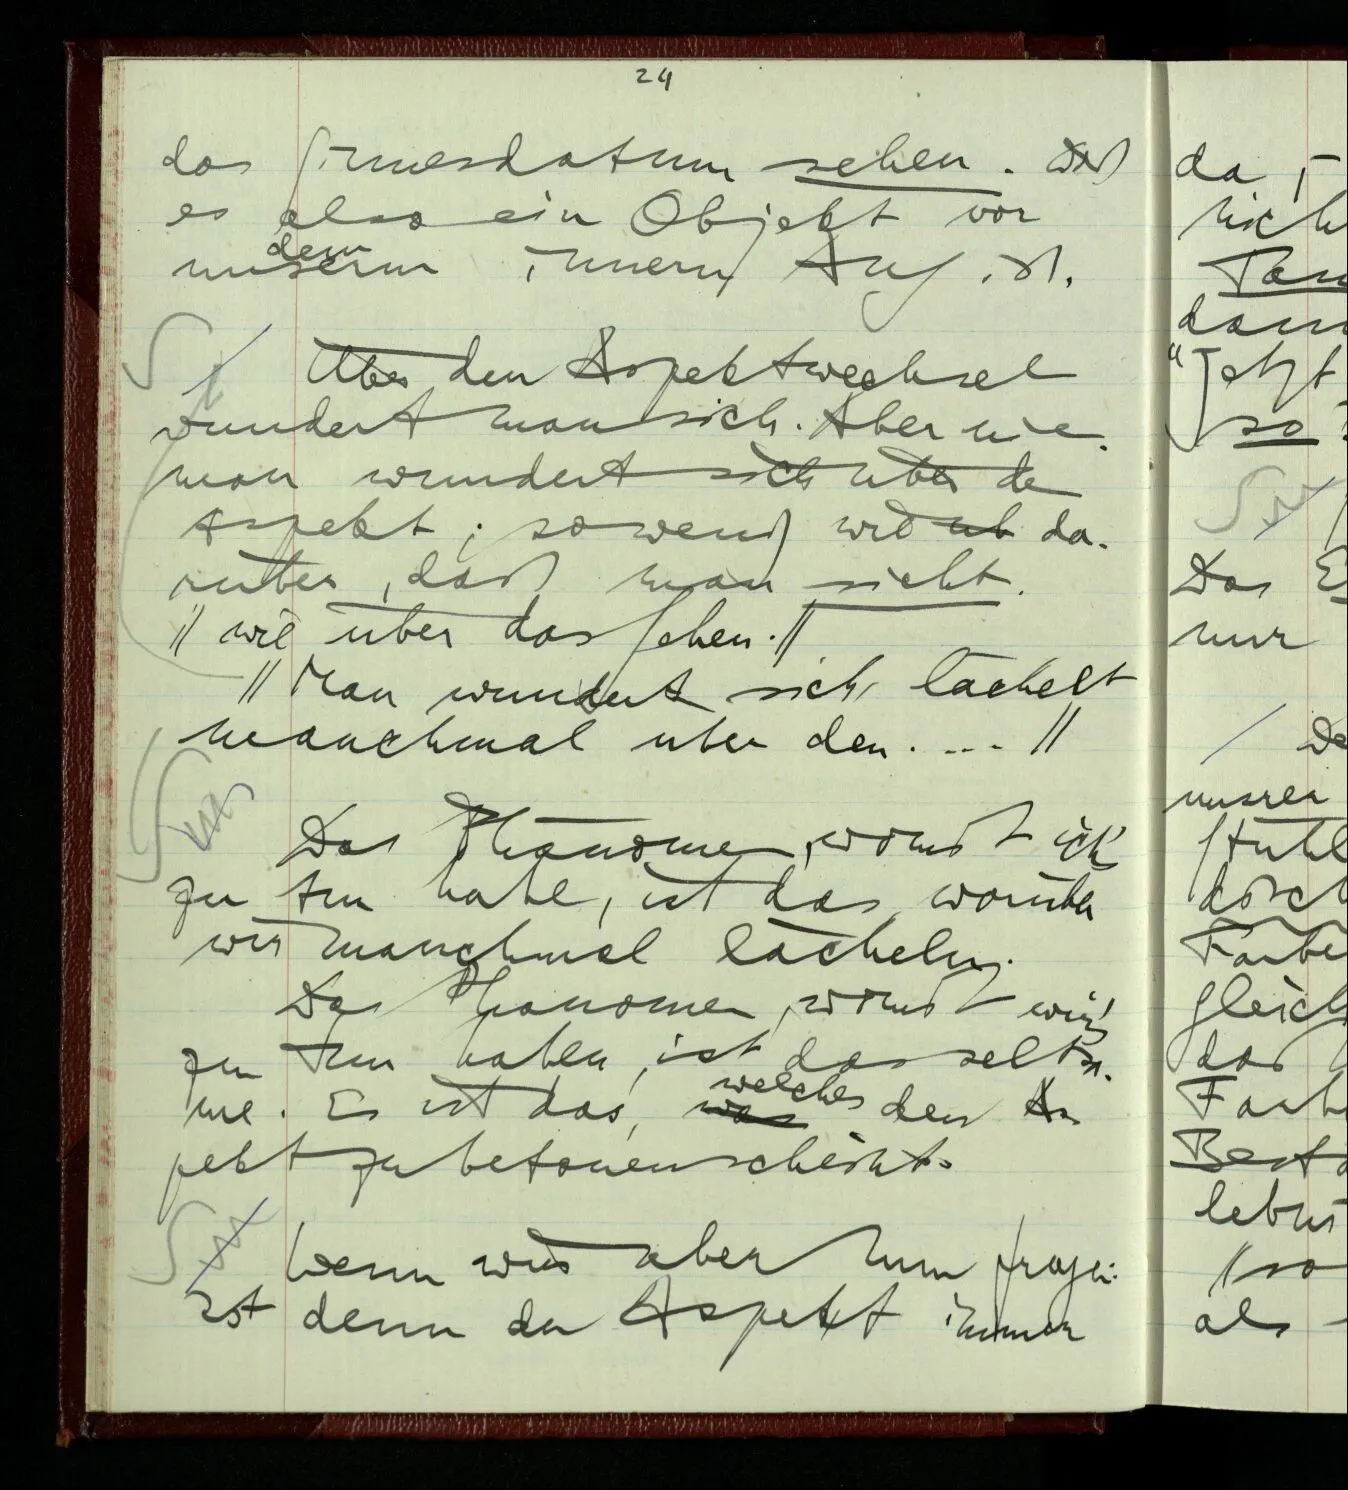 24
das Sinnesdatum sehen. Daß
es also ein Objekt vor
dem
unserm innern Aug ist.
Über den Aspektwechsel
wundert man sich. Aber nie
man wundert sich über den
Aspekt; sowenig wie üb da-
rüber, daß man sieht.
// wie über das Sehen. //
// Man wundert sich, lächelt
manchmal über den . ... //
Das Phänomen, womit ich's
zu tun habe, ist das, worüber
wir manchmal lächeln.
Das Phänomen, womit wir's
zu tun haben, ist das seltsa-
me. Es ist das,
welches
was den As
pekt zu betonen scheint.
Wenn wir aber nun fragen:
ist denn der Aspekt immer
da,
nich
dann
"Jetzt
so
Das
nur
unsrer
Stuhl
Farbe
gleich
das
Farb
als